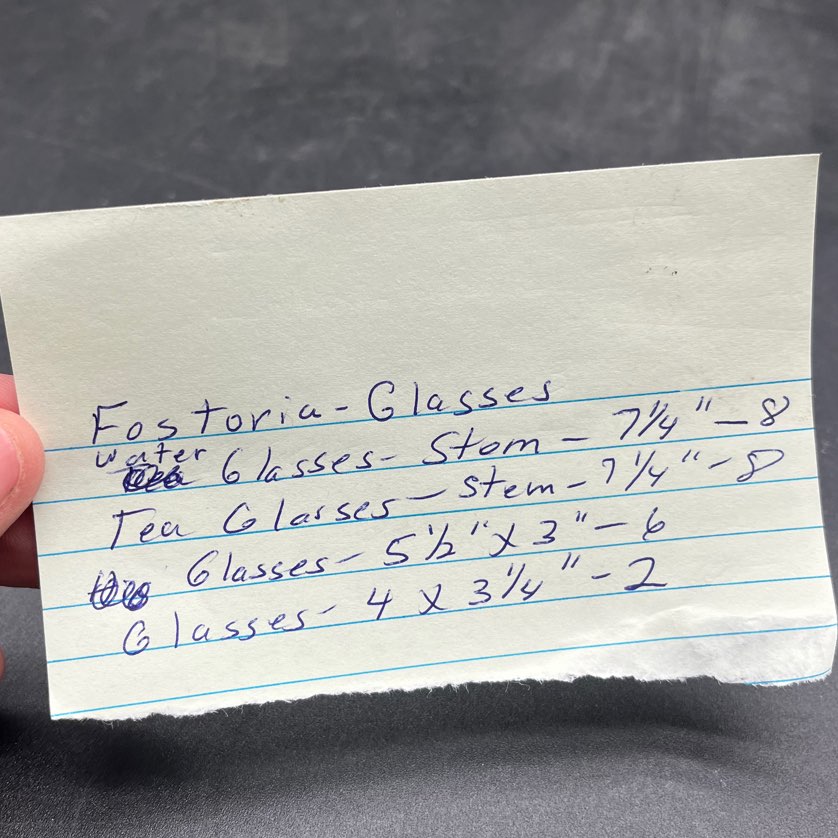 Fostoria - Glasses
water Glasses - Stom - 7 1/4" - 8
Tea Glasses - stem - 7 1/4" - 8
Glasses - 5 1/2" X 3" - 6
Glasses - 4 X 3 1/4" - 2